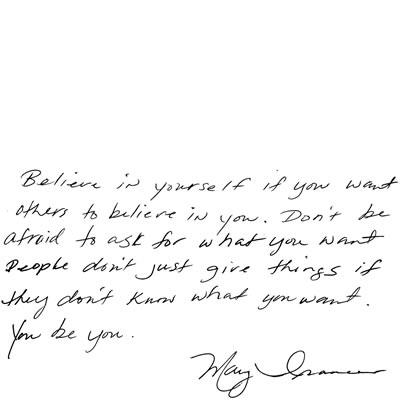 Believe in yourself if you want
others to believe in you. Don't be
afraid to ask for what you want
People don't just give things if
they don't know what you want.
You be you.
May